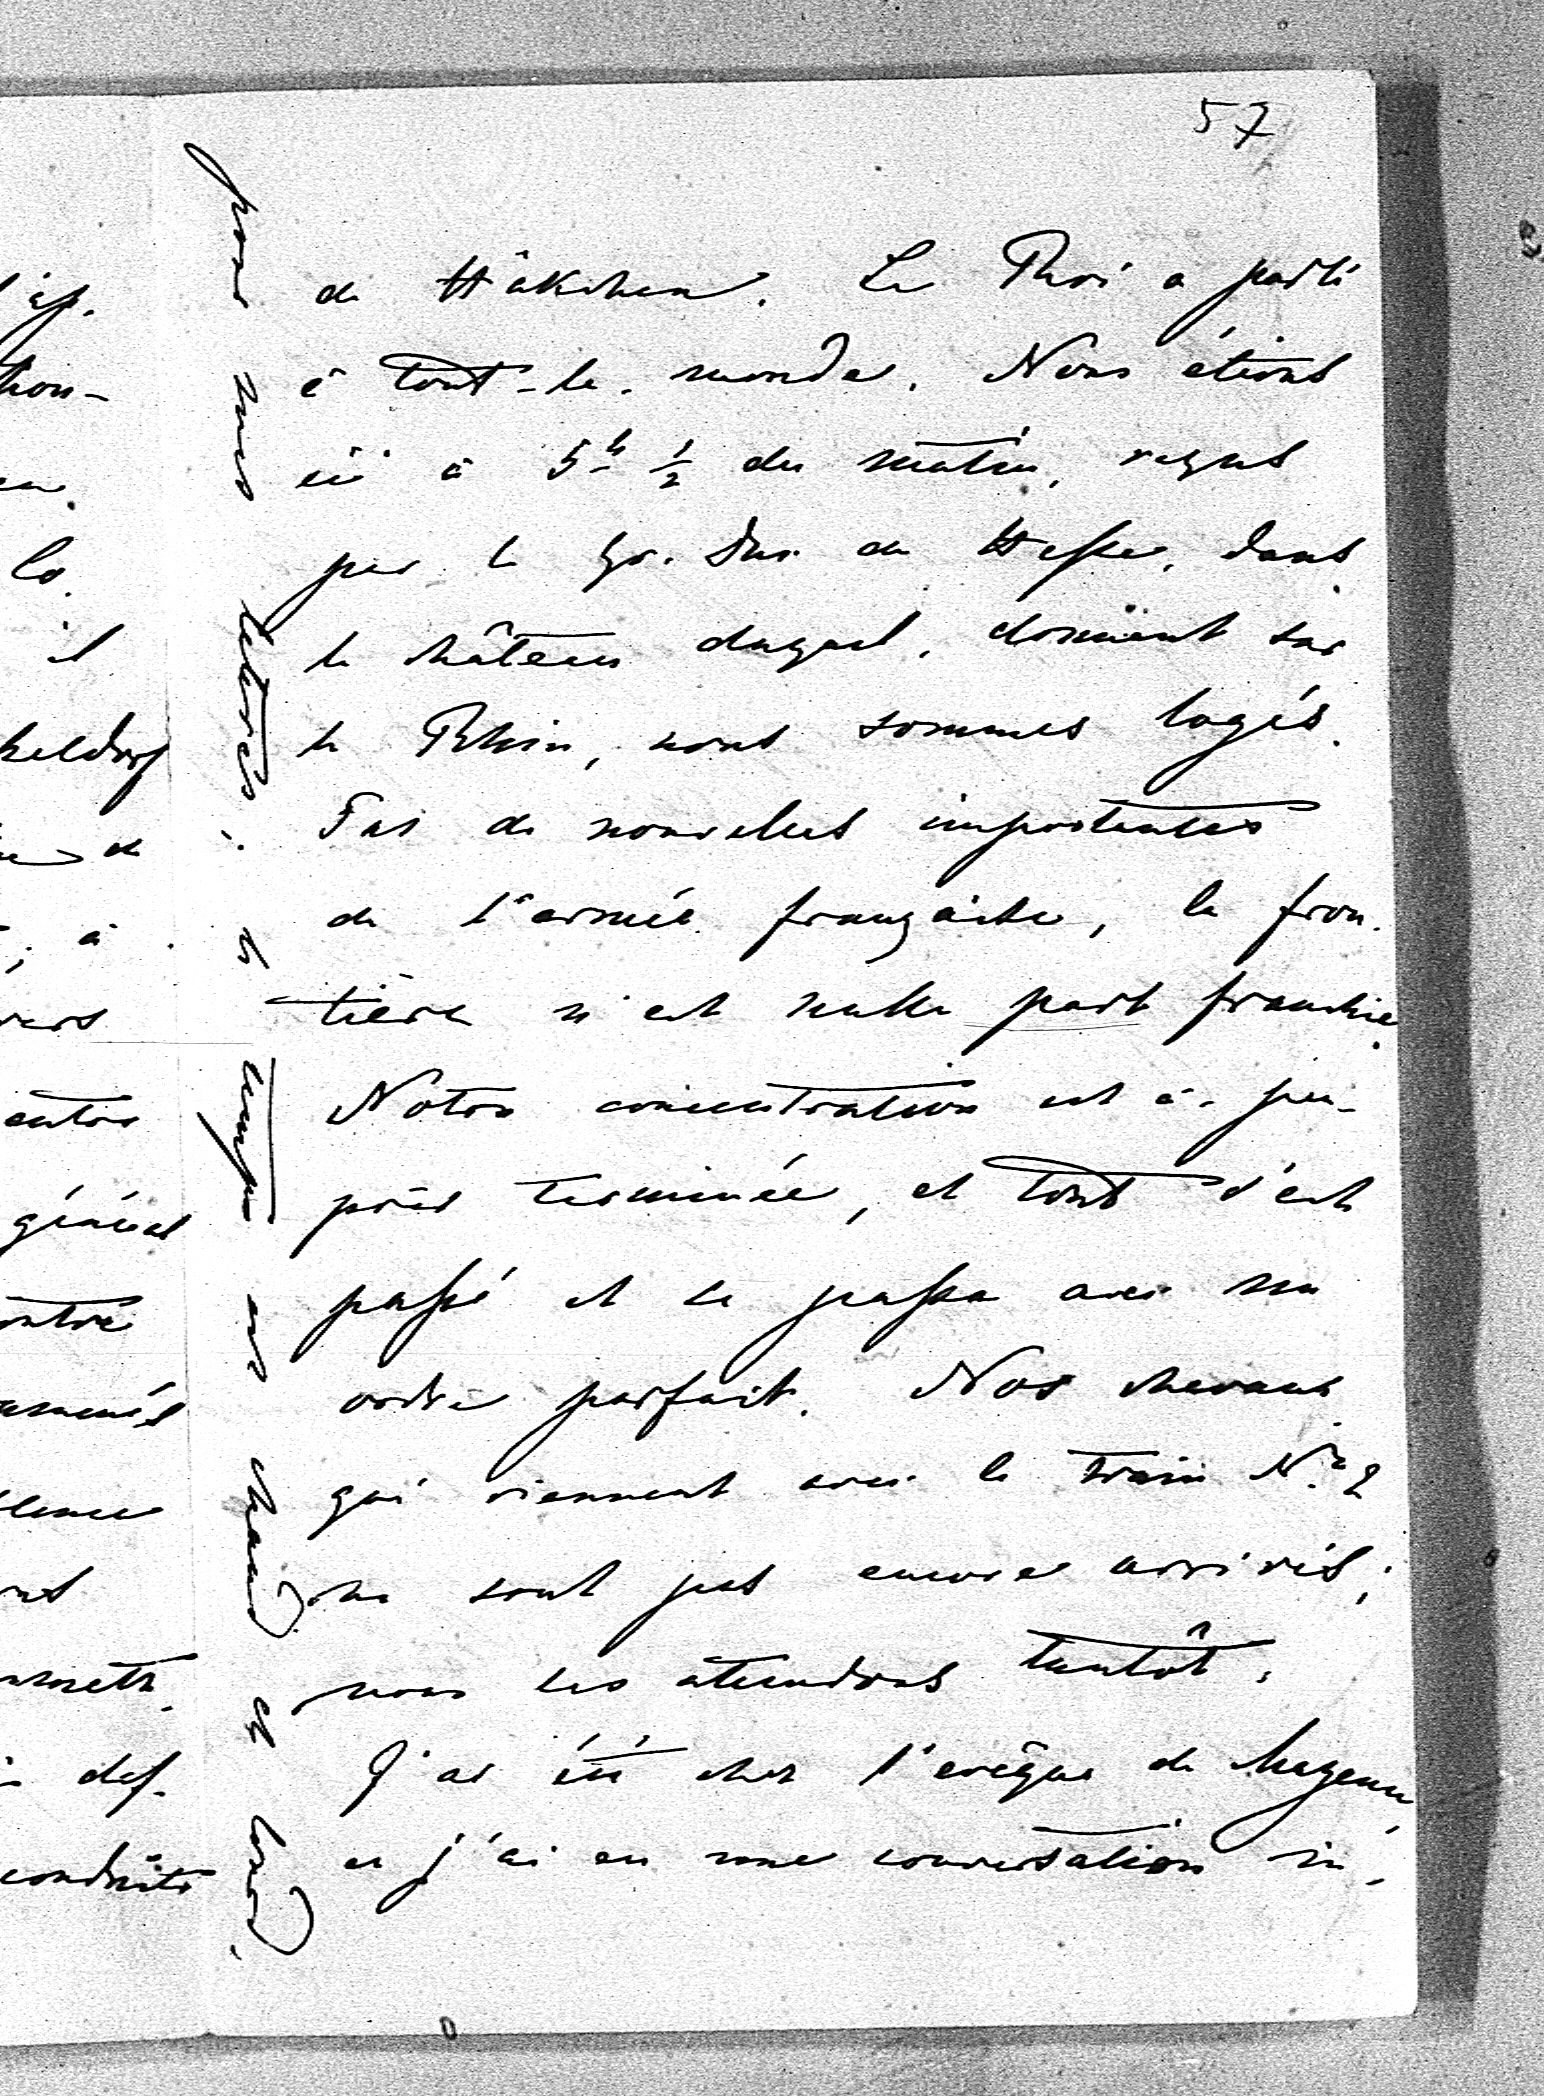 57
de Häkchen. Le Roi a parlé
à tout-le-monde. Nous étions
ici à 5h ½ du matin, reçus
par le Gr. Duc de Hesse, dans
le château duquel, donnant sur
le Rhin, nous sommes logés.
Pas de nouvelles importantes
de l'armée française, la fron-
tière n'est nulle part franchie.
Notre concentration est à-peu-
près terminée, et tout s'est
passé et se passe avec un
ordre parfait. Nos chevaux
qui viennent avec le train No. 2
ne sont pas encore arrivés;
nous les attendons tantôt.
J'ai été chez l'evêque de Mayence,
et j'ai eu une conversation in-
pour mes lettres. Le temps est chaud et lourd.